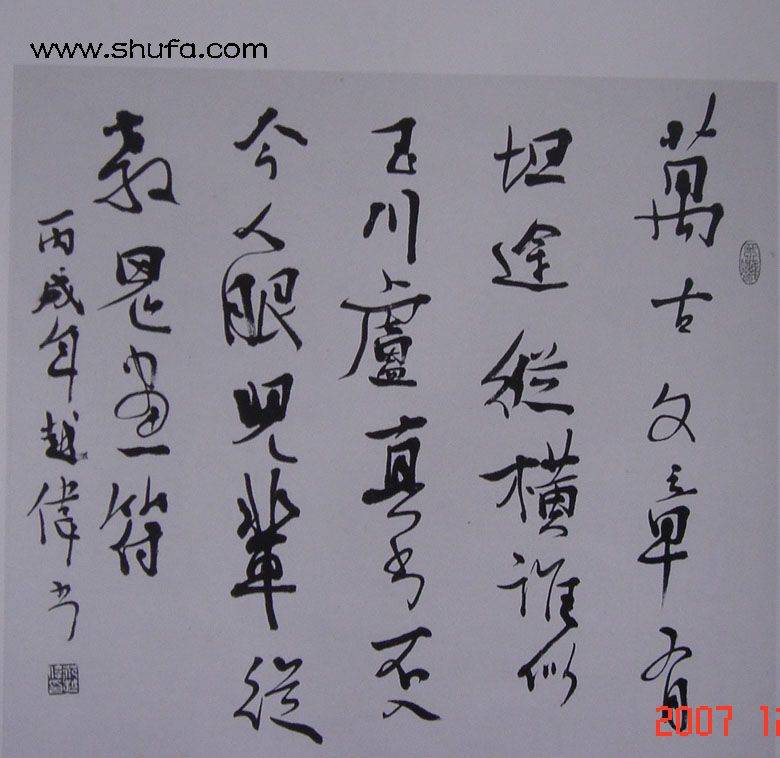 www.shufa.com
萬古文章有
坦途縱橫誰似
玉川盧真书不入
今人眼兒輩從
教鬼畫符
丙戌年越偉书
2007 12